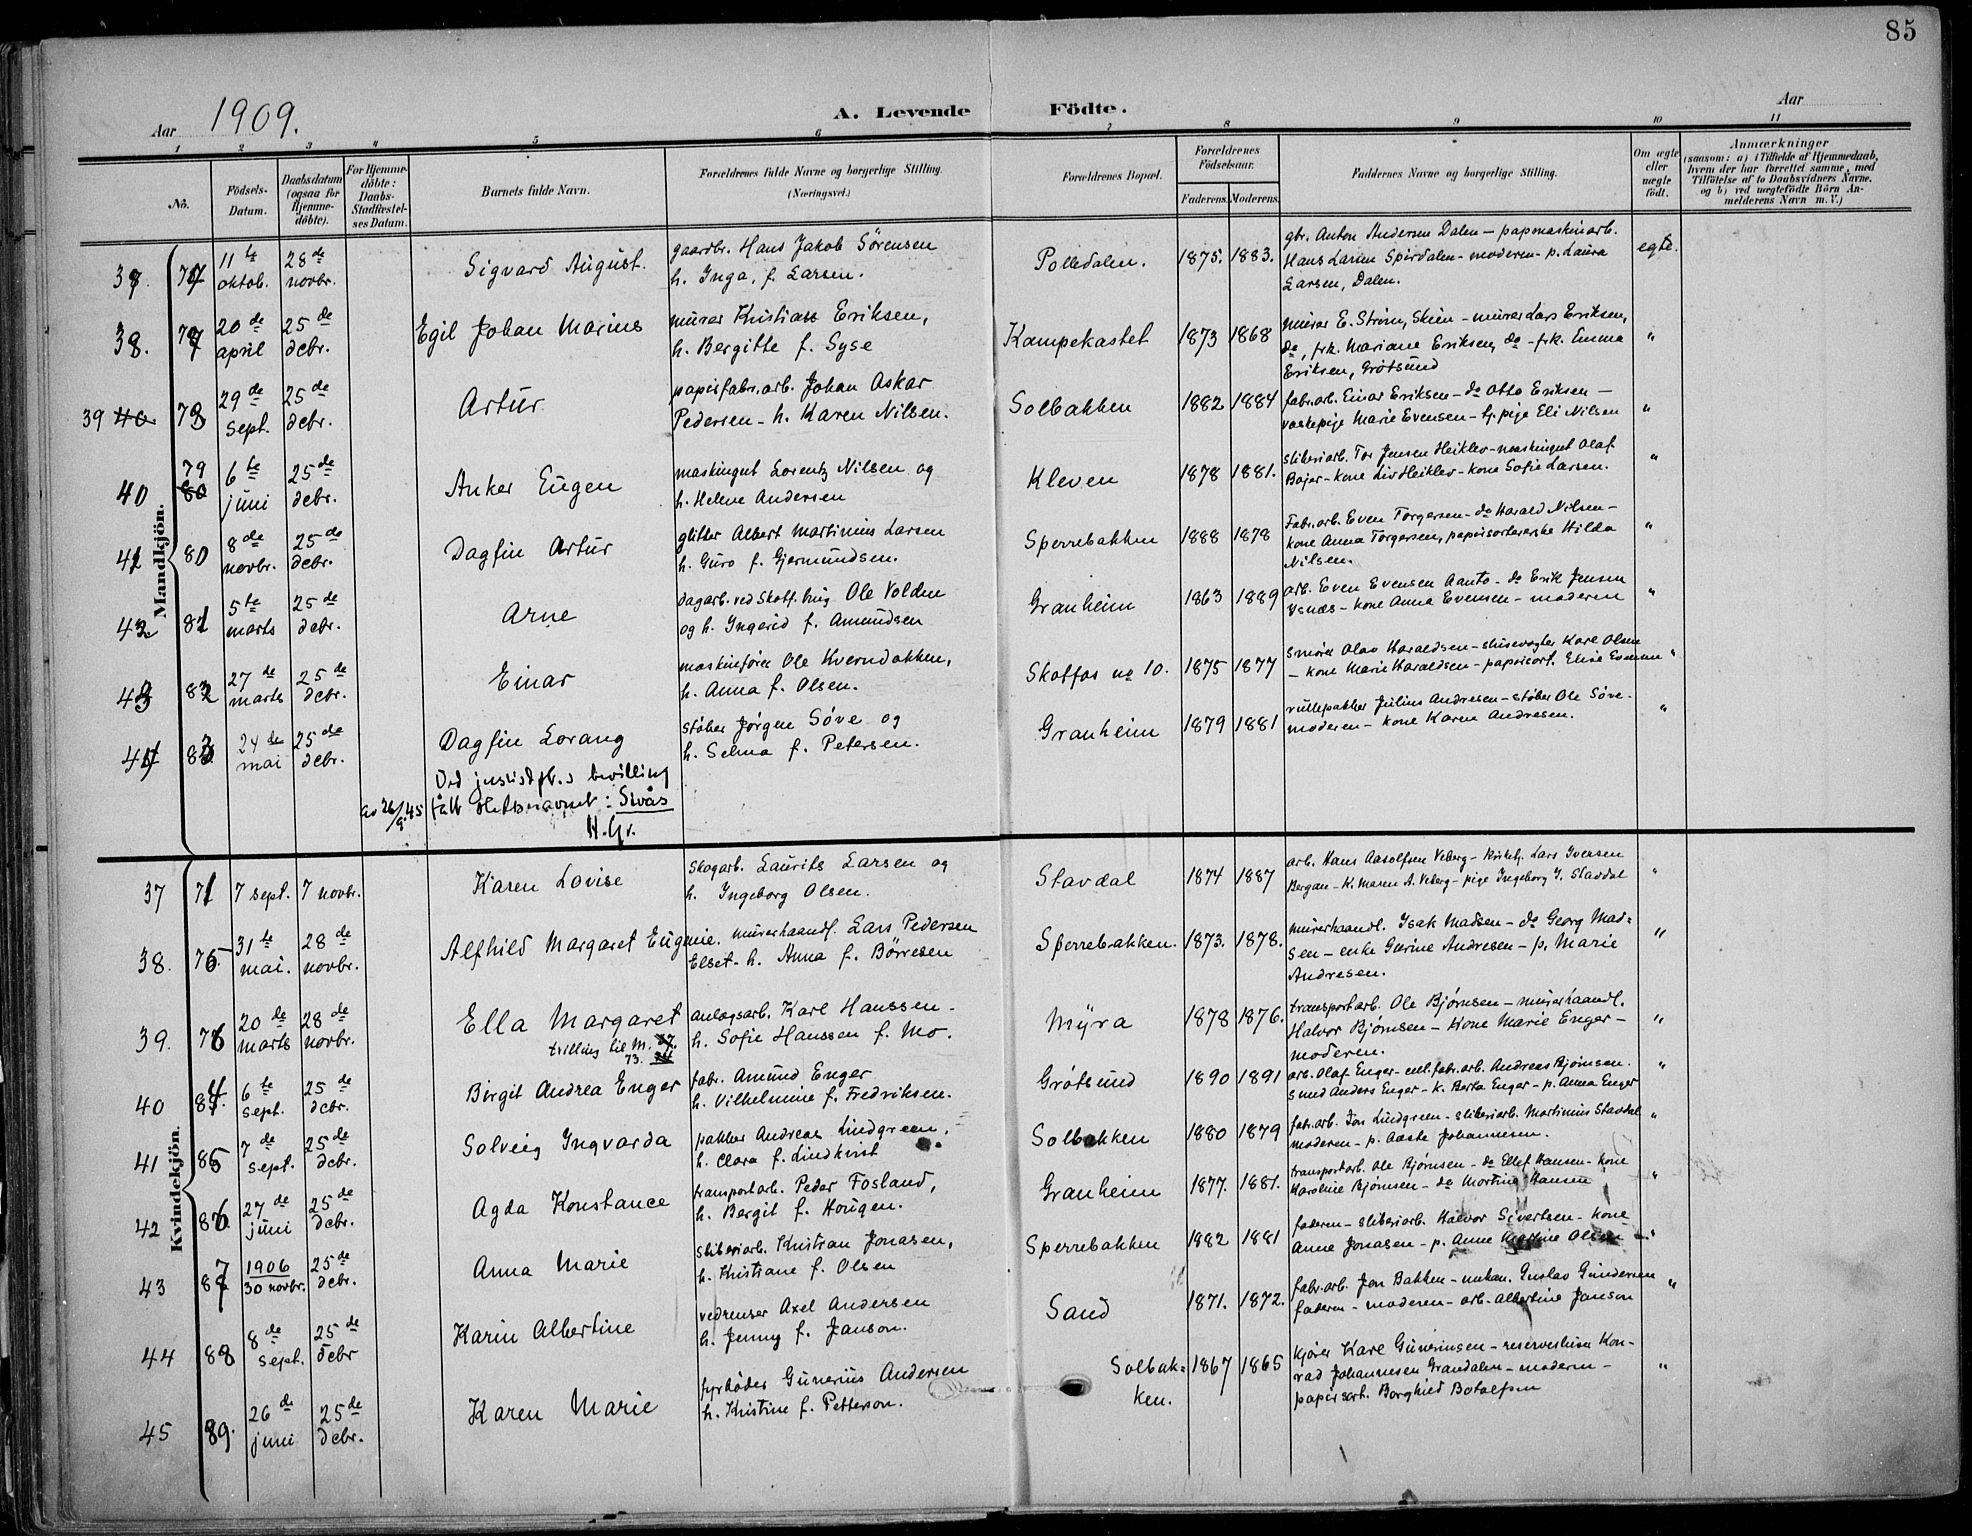 85
Aar 1909. A. Levende Födte. Aar
1 2 3 4 5 6 7 8 9 10 11
No. Födsels-Datum. Daabsdatum (ogsaa for Hjemme-döbte). For Hjemme-döbte: Daabs-Stadfæstel-ses Datum. Barnets fulde Navn. Forældrenes fulde Navne og borgerlige Stilling. (Næringsvei.) Forældrenes Bopæl. Forældrenes Födselsaar. Faderens. Moderens. Faddernes Navne og borgerlige Stilling. Om ægte eller uægte födt. Anmærkninger (saasom: a) i Tilfælde af Hjemmedaab, hvem der har forrettet samme, med Tilföielse af to Daabsvidners Navne, og b) ved uægtefödte Börn An-melderens Navn m. V.)
Mandkjön.
37. 11te oktob. 28de novbr. Sigvard August. gaardbr. Hans Jakob Sörensen
h. Inga, f. Larsen. Polledalen. 1875. 1883. gbr. Anton Andersen Dalen – papmaskinarb.
Hans Larsen Spirdalen – moderen – p. Laura
Larsen, Dalen. egte.
38. 20de april 25de debr. Egil Johan Marius murer Kristian Eriksen,
h. Bergitte f. Syse Kampekastet 1873 1868 murer E. Strøm, Skien – murer Lars Eriksen,
do, frk. Mariane Eriksen, do – frk. Emma
Eriksen, Grötsund "
39 40 78 29de sept. 25de debr. Artur papirfabr.arb. Johan Askar
Pedersen – h. Karen Nilsen. Solbakken 1882 1884 fabr.arb. Einar Eriksen – do Otto Eriksen –
vaskepige Marie Evensen – tj.pige Eli Nilsen "
40 79 80 6te juni 25de debr. Anker Eugen maskingut Lorentz Nilsen og
h. Helene Andersen Kleven 1878 1881. sliberiarb. Tor Jensen Heiklev – maskingut Olaf
Bojer – kone Liv Heiklev – kone Sofie Larsen. "
41 80 8de novbr. 25de debr. Dagfin Artur glitter Albert Martinius Larsen
h. Guro f. Gjermundsen. Sperrebakken 1888 1878 Fabr.arb. Even Torgersen – do Harald Nilsen –
kone Anna Torgersen, papirsorterske Hilda
Nilsen. "
42 81 5te marts 25de debr. Arne dagarb. ved Skotf. brug Ole Volden
og h. Ingerid f. Amundsen Granheim 1863 1889 arb. Even Evensen Aanto – do Erik Jensen
Vsnæs – kone Anna Evensen – moderen "
43 82 27de marts 25de debr. Einar maskinfører Ole Kverndokken,
h. Anna f. Olsen. Skotfos no 10. 1875 1877 smører Olav Haraldsen – slusevogter Karl Olsen
– kone Marie Haraldsen – papirsort. Elise Evensen "
44 83 24de mai 25de debr. Dagfin Lorang støber Jörgen Söve og
h. Selma f. Petersen. Granheim 1879 1881 rullepakker Julius Andresen – støber Ole Söve –
moderen – kone Karen Andresen. "
Ved justisdp.s bevilling
av 26/9 45 fått slektsnavnet: Svås
H. Gr.
Kvindekjön.
37 71 7 sept. 7 novbr. Karen Lovise Skogarb. Laurits Larsen og
h. Ingeborg Olsen. Stavdal 1874 1887 arb. Hans Aasolfsen Veberg – Lars Iversen
Bergan – K. Maren A. Veberg – pige Ingeborg I. Stavdal "
38. 75. 31te mai. 28de novbr. Alfhild Margaret Eugenie. murerhaandl. Lars Pedersen
Elset – h. Anna f. Börresen Sperrebakken. 1873. 1878. murerhaandl. Isak Madsen – do Georg Mad=
sen – enke Gurine Andresen – p. Marie
Andresen. "
39. 76 20de marts 28de novbr. Ella Margaret anlægsarb. Karl Hanssen –
tvilling til M. 73. h. Sofie Hanssen f. Mo. Myra 1878 1876. transportarb. Ole Bjørnsen – murerhaandl.
Halvor Bjørnsen – kone Marie Enger –
moderen. "
40 84. 6te sept. 25de debr. Birgit Andrea Enger fabr. Amund Enger
h. Vilhelmine f. Fredriksen. Grötsund 1890 1891 arb. Olaf Enger – fabr.arb. Andreas Bjørnsen.
smed Anders Enger – k. Berta Enger – p. Anna Enger "
41 85 7de sept. 25de debr. Solveig Ingvarda pakker Andreas Lindgreen.
h. Clara f. Lindkvist Solbakken 1880 1879 fabr.arb. Jon Lindgreen – sliberiarb. Martinius Stavdal
moderen – p. Aaste Johannesen. "
42 86 27de juni 25de debr. Agda Konstance transportarb. Peder Fosland,
h. Bergit f. Hougen. Granheim 1877. 1881. transportarb. Ole Bjørnsen – do Ellef Hansen – kone
Karoline Bjørnsen – do Martine Hansen "
43 87 1906 30 novbr. 25de debr. Anna Marie sliberiarb. Kristian Jonasen,
h. Kristiane f. Olsen Sperrebakken 1882 1881 faderen – sliberiarb. Halvor Sivertsen – kone
Anne Jonasen – p. Anne Olsen "
44 88 8de sept. 25de debr Karin Albertine vedrenser Axel Andersen
h. Jenny f. Janson. Sand 1871. 1872. fabr.arb. Jon Bakken – mekan. Gustav Gundersen
faderen – moderen – arb. Albertine Janson "
45 89. 26de juni 25de debr. Karen Marie fyrbøder Gunerius Andersen
h. Kristine f. Petterson. Solbak=
ken. 1867 1865 kjører Karl Guneriusen – Kon-
rad Johannesen Grandalen – moderen –
papirsort. Borghild Botolfsen "